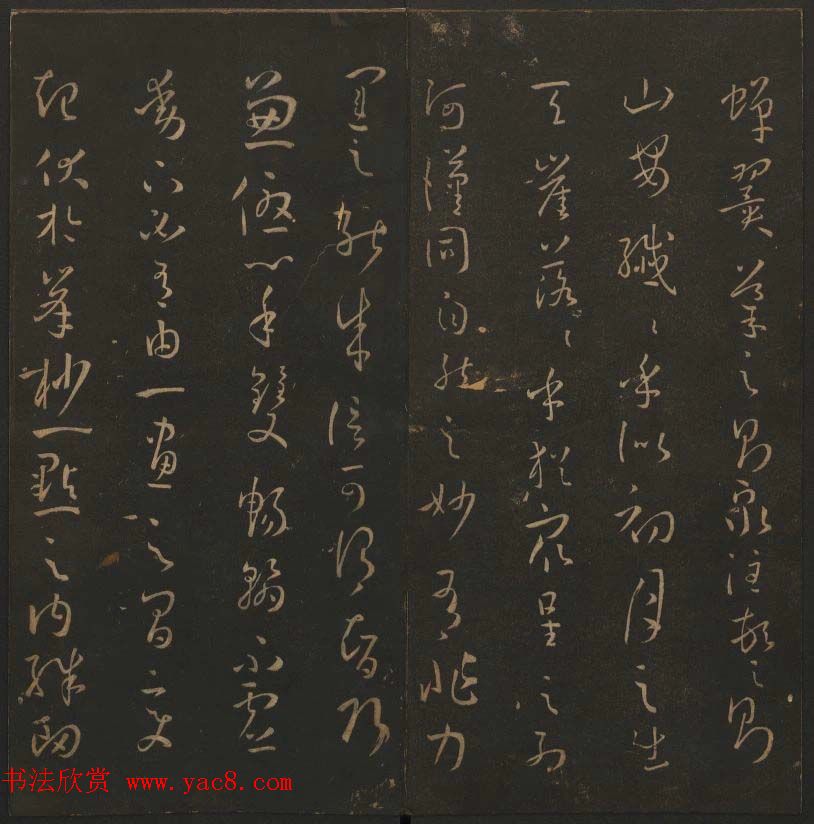 蟬翼導之則泉注頓之則
山安纖〻乎似初月之出
天崖落〻乎猶衆星之列
河漢同自然之妙有非力
運之能成信可謂智巧
兼優心手雙暢翰不虛
動下必有由一畫之間變
起伏於峯杪一點之内殊衄
书法欣赏 www.yac8.com